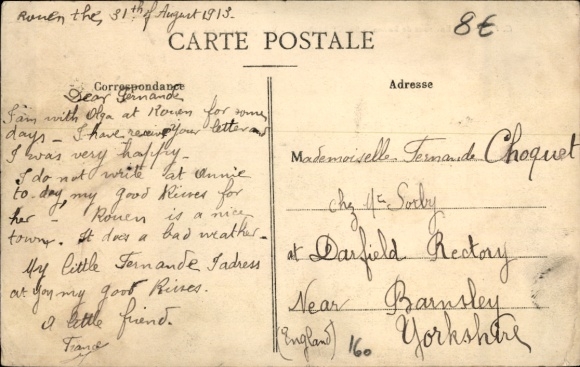 Rouen the, 31th of August 1913.
8€
CARTE POSTALE
Correspondance
Adresse
Dear Fernande
I am with Olga at Rouen for some
days – I have receive your letter and
I was very happy –
I do not write at Annie
to day, my good Kisses for
her – Rouen is a nice
towne. It does a bad weather –
My little Fernande I adress
at you my good Kisses.
A little friend.
France
Mademoiselle Fernande Choquet
chez Mr Sorby
at Darfield Rectory
Near Barnsley
(England) Yorkshire
160